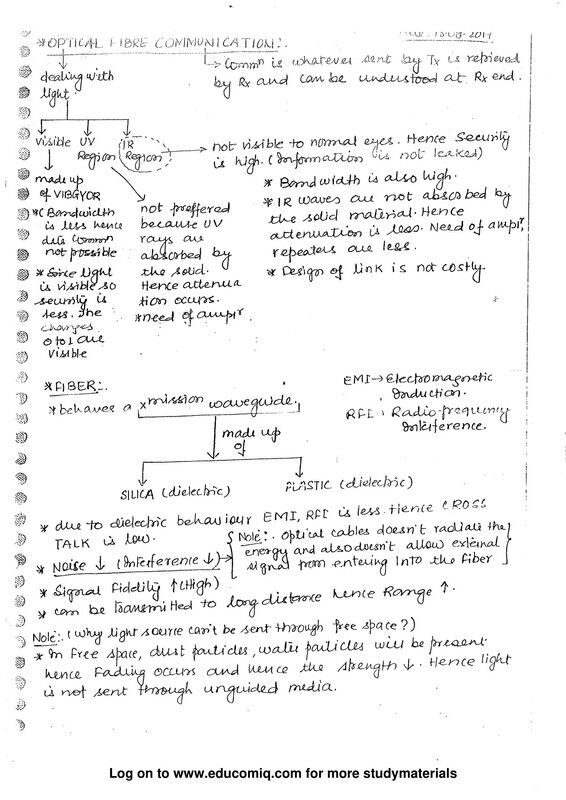 18-08-2014
*OPTICAL FIBRE COMMUNICATION:.
Commⁿ is whatever sent by Tx is retrieved
by Rx and can be understood at Rx end.
dealing with
light.
Visible
UV
Region
IR
Region
not visible to normal eyes. Hence Security
is high. (Information is not leaked)
* Bandwidth is also high.
* IR waves are not absorbed by
the solid material. Hence
attenuation is less. Need of ampʳ,
repeaters are less.
* Design of link is not costly.
made up
of VIBGYOR
*(Bandwidth
is less hence
data Commⁿ
not possible
* Since light
is visible so
security is
less. The
changes
0 to 1 are
visible
not preffered
because UV
rays are
absorbed by
the solid.
Hence attenua
tion occurs.
*need of ampʳ
*FIBER:.
*behaves a xmission waveguide.
EMI→Electromagnetic
Induction.
RFI : Radio-frequency
Interference.
made up
of
SILICA (dielectric)
PLASTIC (dielectric)
* due to dielectric behaviour EMI, RFI is less. Hence CROSS
TALK is low.
* Noise ↓ (Interference ↓)→
Note:. Optical cables doesn't radiate the
energy and also doesn't allow external
signal from entering into the fiber
* Signal Fidelity ↑ (High)
* can be transmitted to long distance hence Range ↑.
Note:. (Why light source can't be sent through free space?)
* In free space, dust particles, water particles will be present
hence Fading occurs and hence the strength ↓. Hence light
is not sent through unguided media.
Log on to www.educomiq.com for more studymaterials